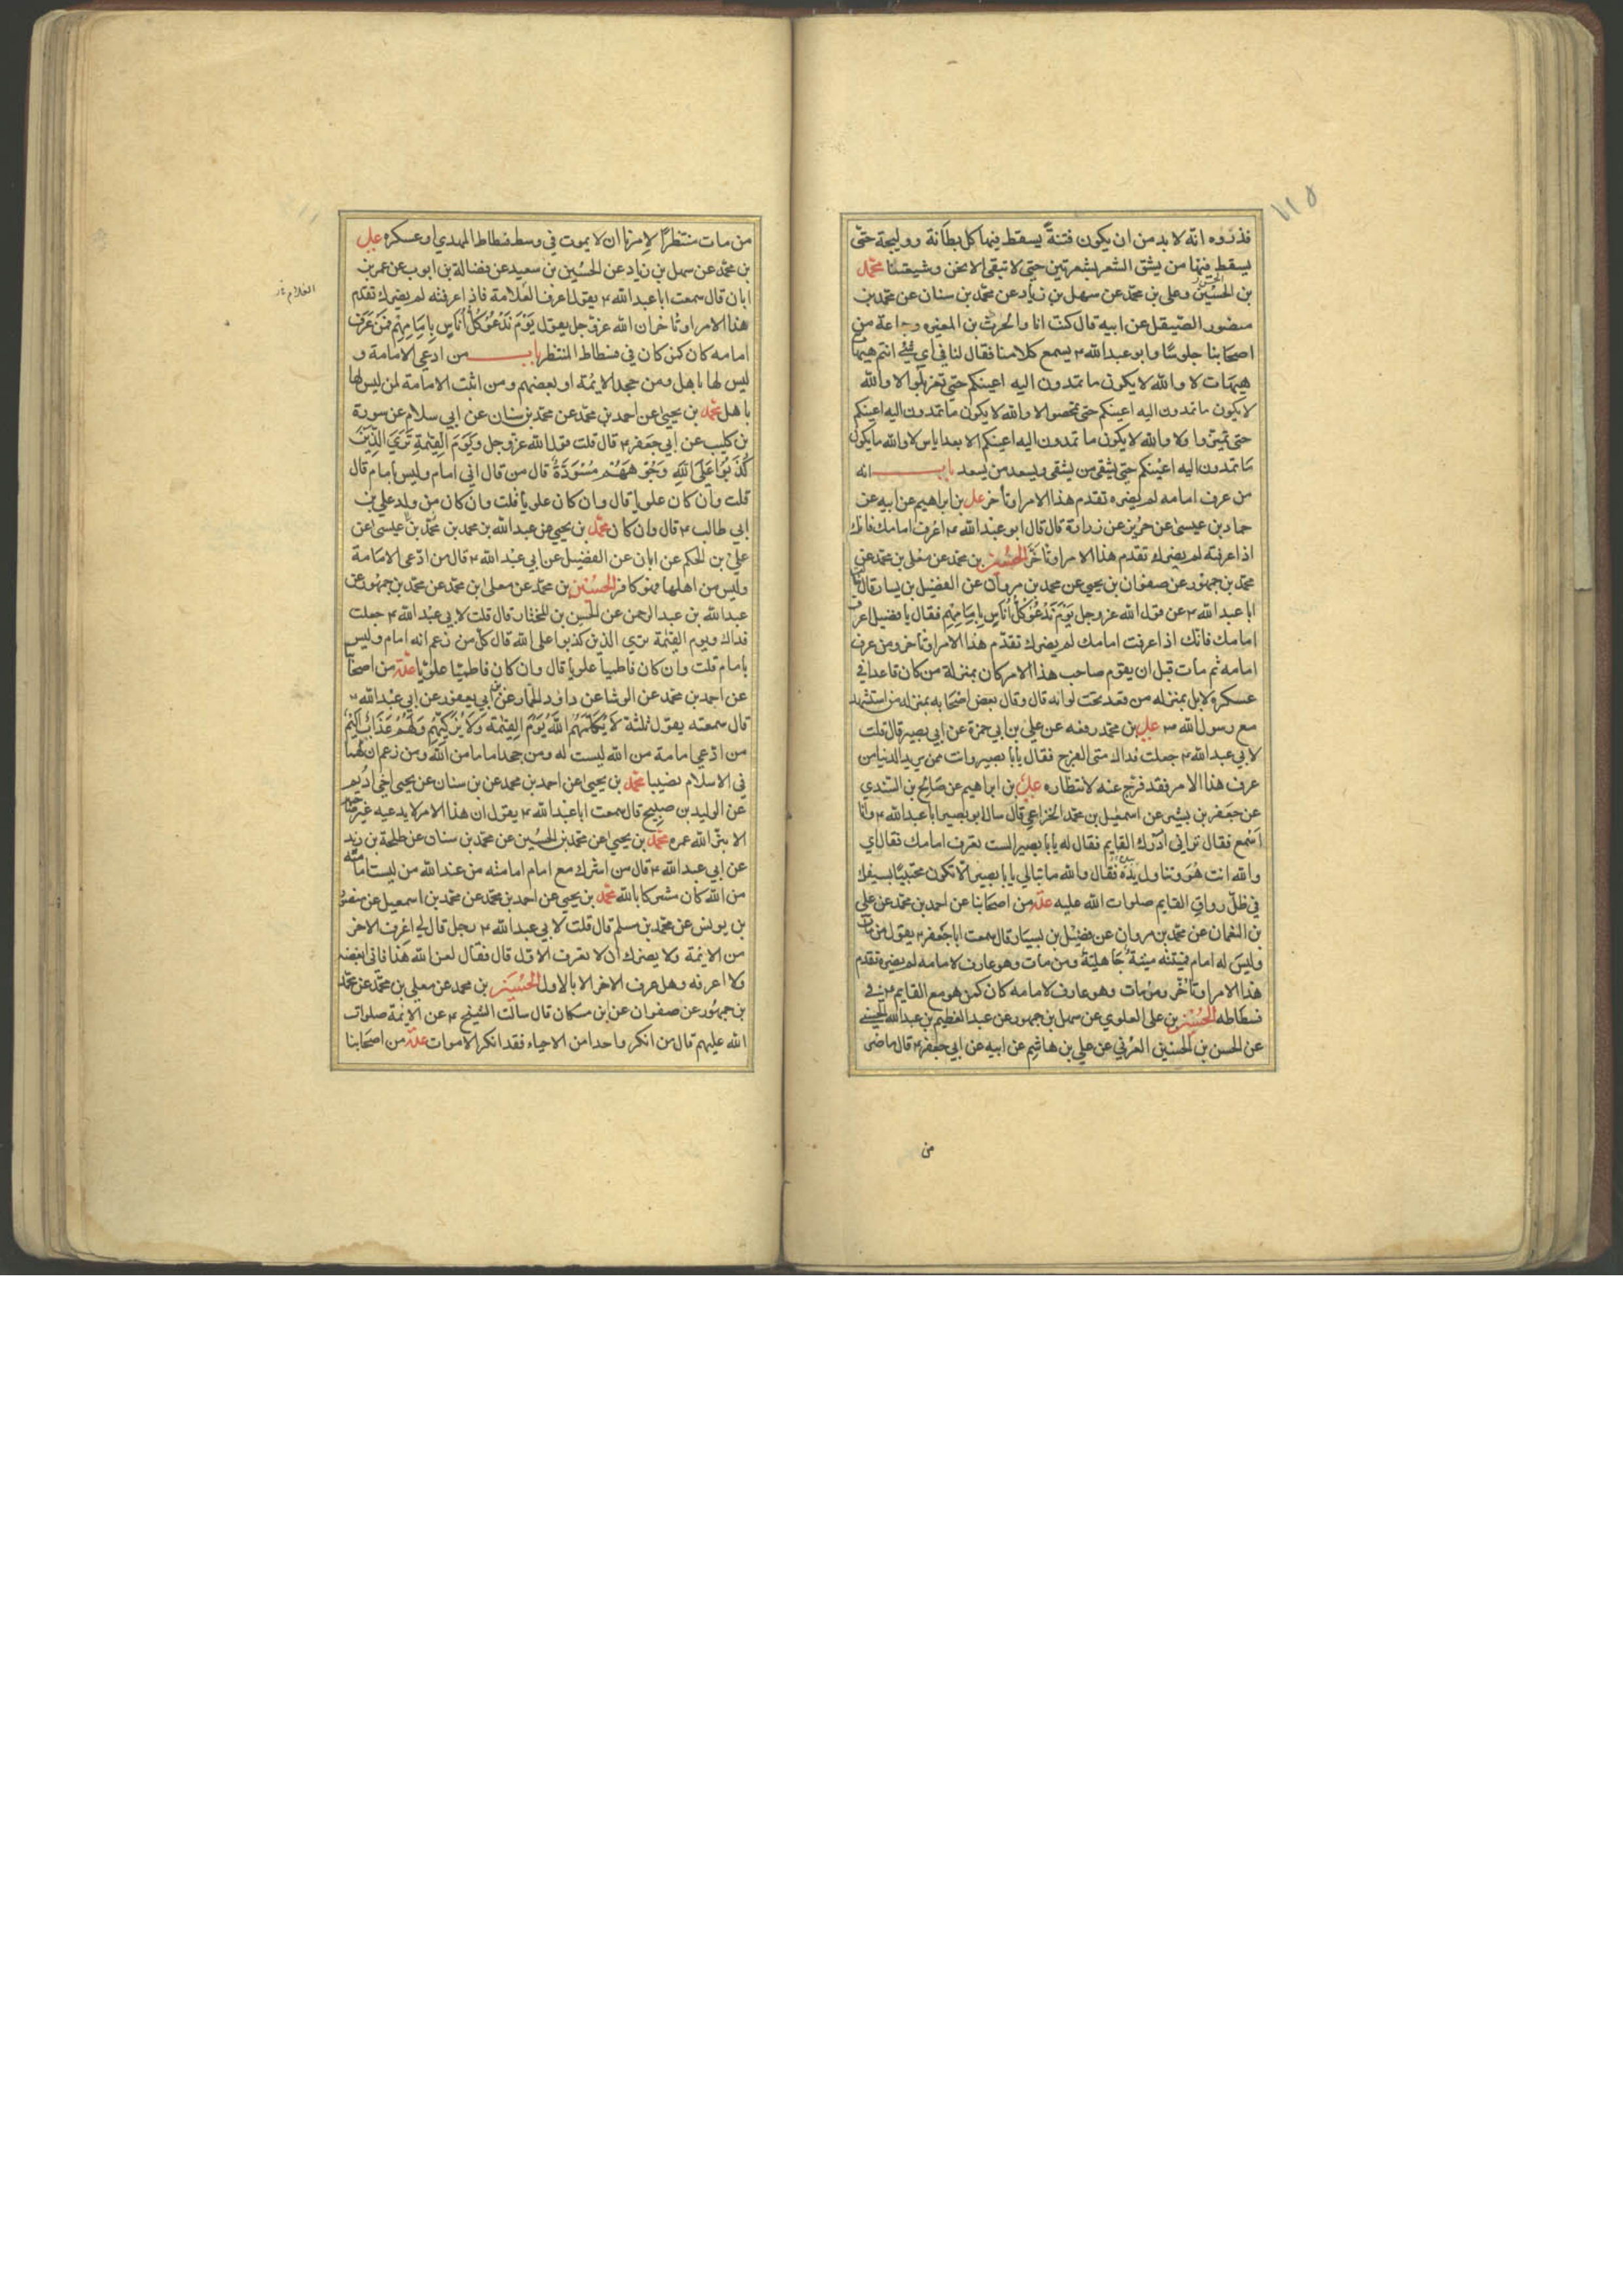 ١١٥
فذروه انه لا بد من ان يكون فتنة يسقط فيها كل بطانة ووليجة حتى
يسقط فيها من يشق الشعر بشعرتين حتى لا تبقى الا نحن وشيعتنا محمد
بن الحسين وعلى بن محمد عن سهل بن زياد عن محمد بن سنان عن محمد بن
منصور الصيقل عن ابيه قال كنت انا والحرث بن المغيره وجماعة من
اصحابنا جلوسا وابو عبد الله ع يسمع كلامنا فقال لنا في اي شئ انتم هيهات
هيهات لا والله لا يكون ما تمدون اليه اعينكم حتى تغربلوا لا والله
لا يكون ما تمدون اليه اعينكم حتى تمحصوا لا والله لا يكون ما تمدون اليه اعينكم
حتى تميزوا ولا والله لا يكون ما تمدون اليه اعينكم الا بعد اياس لا والله ما يكون
ما تمدون اليه اعينكم حتى يشقى من يشقى ويسعد من يسعد باب انه
من عرف امامه لم يضره تقدم هذا الامر او تأخر على بن ابراهيم عن ابيه عن
حماد بن عيسى عن حريز عن زرارة قال قال ابو عبد الله ع اعرف امامك فانك
اذا عرفته لم يضرك تقدم هذا الامر او تأخر الحسين بن محمد عن معلى بن محمد عن
محمد بن جمهور عن صفوان بن يحيى عن محمد بن مروان عن الفضيل بن يسار قال
ابا عبد الله ع عن قول الله عز وجل يَوْمَ نَدْعُو كُلَّ أُنَاسٍ بِإِمَامِهِم فقال يا فضيل اعرف
امامك فانك اذا عرفت امامك لم يضرك تقدم هذا الامر او تأخر ومن عرف
امامه ثم مات قبل ان يقوم صاحب هذا الامر كان بمنزلة من كان قاعدا في
عسكره لا بل بمنزله من قعد تحت لوائه قال وقال بعض اصحابه بمنزله من استشهد
مع رسول الله ص على بن محمد رفعه عن علي بن ابي حمزة عن ابي بصير قال قلت
لابي عبد الله ع جعلت فداك متى الفرج فقال يا با بصير وانت ممن يريد الدنيا من
عرف هذا الامر فقد فرج عنه لانتظاره على بن ابراهيم عن صالح بن السندي
عن جعفر بن بشير عن اسمعيل بن محمد الخزاعي قال سال ابو بصير ابا عبد الله ع وانا
اسمع فقال تراني ادرك القايم فقال له يا با بصير الست تعرف امامك فقال اي
والله انت هو وتناول يده فقال والله ما تبالي يا با بصير الا تكون محتبيا بسيفك
في ظل رواق القايم صلوات الله عليه عدة من اصحابنا عن احمد بن محمد عن علي
بن النعمان عن محمد بن مروان عن فضيل بن يسار قال سمعت ابا جعفر ع يقول من مات
وليس له امام فميتته ميتة جاهلية ومن مات وهو عارف لامامه لم يضره تقدم
هذا الامر او تأخر ومن مات وهو عارف لامامه كان كمن هو مع القايم ع في
فسطاطه الحسين بن على العلوي عن سهل بن جمهور عن عبد العظيم بن عبد الله الحسني
عن الحسن بن الحسين العرني عن علي بن هاشم عن ابيه عن ابي جعفر ع قال ما ضر
من
من مات منتظرا لامرنا ان لا يموت في وسط فسطاط المهدي او عسكره على
بن محمد عن سهل بن زياد عن الحسين بن سعيد عن فضالة بن ايوب عن عمر بن
ابان قال سمعت ابا عبد الله ع يقول اعرف العلامة فاذا عرفته لم يضرك تقدم
هذا الامر او تأخر ان الله عز وجل يقول يَوْمَ نَدْعُو كُلَّ أُنَاسٍ بِإِمَامِهِم فمن عرف
امامه كان كمن كان في فسطاط المنتظر باب من ادعى الامامة و
ليس لها باهل ومن جحد الايمة او بعضهم ومن اثبت الامامة لمن ليس لها
باهل محمد بن يحيى عن احمد بن محمد عن محمد بن سنان عن ابي سلام عن سورة
بن كليب عن ابي جعفر ع قال قلت قول الله عز وجل وَيَوْمَ القِيمَةِ تَرَى الَّذِينَ
كَذَبُوا عَلَى اللهِ وُجُوهُهُمْ مُسْوَدَّةٌ قال من قال اني امام وليس بامام قال
قلت وان كان علويا قال وان كان علويا قلت وان كان من ولد علي بن
ابي طالب ع قال وان كان محمد بن يحيى عن عبد الله بن محمد بن محمد بن عيسى عن
علي بن الحكم عن ابان عن الفضيل عن ابي عبد الله ع قال من ادعى الامامة
وليس من اهلها فهو كافر الحسين بن محمد عن معلى بن محمد عن محمد بن جمهور عن
عبد الله بن عبد الرحمن عن الحسين بن المختار قال قلت لابي عبد الله ع جعلت
فداك ويوم القيمة ترى الذين كذبوا على الله قال كل من زعم انه امام وليس
بامام قلت وان كان فاطميا علويا قال وان كان فاطميا علويا عدة من اصحابنا
عن احمد بن محمد عن الوشا عن داود الحمار عن ابي يعفور عن ابي عبد الله ع
قال سمعته يقول ثلثة لا يُكَلِّمُهُمُ اللهُ يَوْمَ القِيمَةِ وَلَا يُزَكِّيهِمْ وَلَهُمْ عَذَابٌ أَلِيمٌ
من ادعى امامة من الله ليست له ومن جحد اماما من الله ومن زعم ان لهما
في الاسلام نصيبا محمد بن يحيى عن احمد بن محمد عن بن سنان عن يحيى اخي اديم
عن الوليد بن صبيح قال سمعت ابا عبد الله ع يقول ان هذا الامر لا يدعيه غير صاحبه
الا بتر الله عمره محمد بن يحيى عن محمد بن الحسين عن محمد بن سنان عن طلحة بن زيد
عن ابي عبد الله ع قال من اشرك مع امام امامته من عند الله من ليست امامته
من الله كان مشركا بالله محمد بن يحيى عن احمد بن محمد عن محمد بن اسمعيل عن منصور
بن يونس عن محمد بن مسلم قال قلت لابي عبد الله ع رجل قال لي اعرف الاخر
من الايمة ولا يضرك ان لا تعرف الاول قال فقال لعن الله هذا فاني ابغضه
ولا اعرفه وهل عرف الاخر الا بالاول الحسين بن محمد عن معلى بن محمد عن محمد
بن جمهور عن صفوان عن ابن مسكان قال سالت الشيخ ع عن الايمة صلوات
الله عليهم قال من انكر واحدا من الاحياء فقد انكر الاموات عدة من اصحابنا